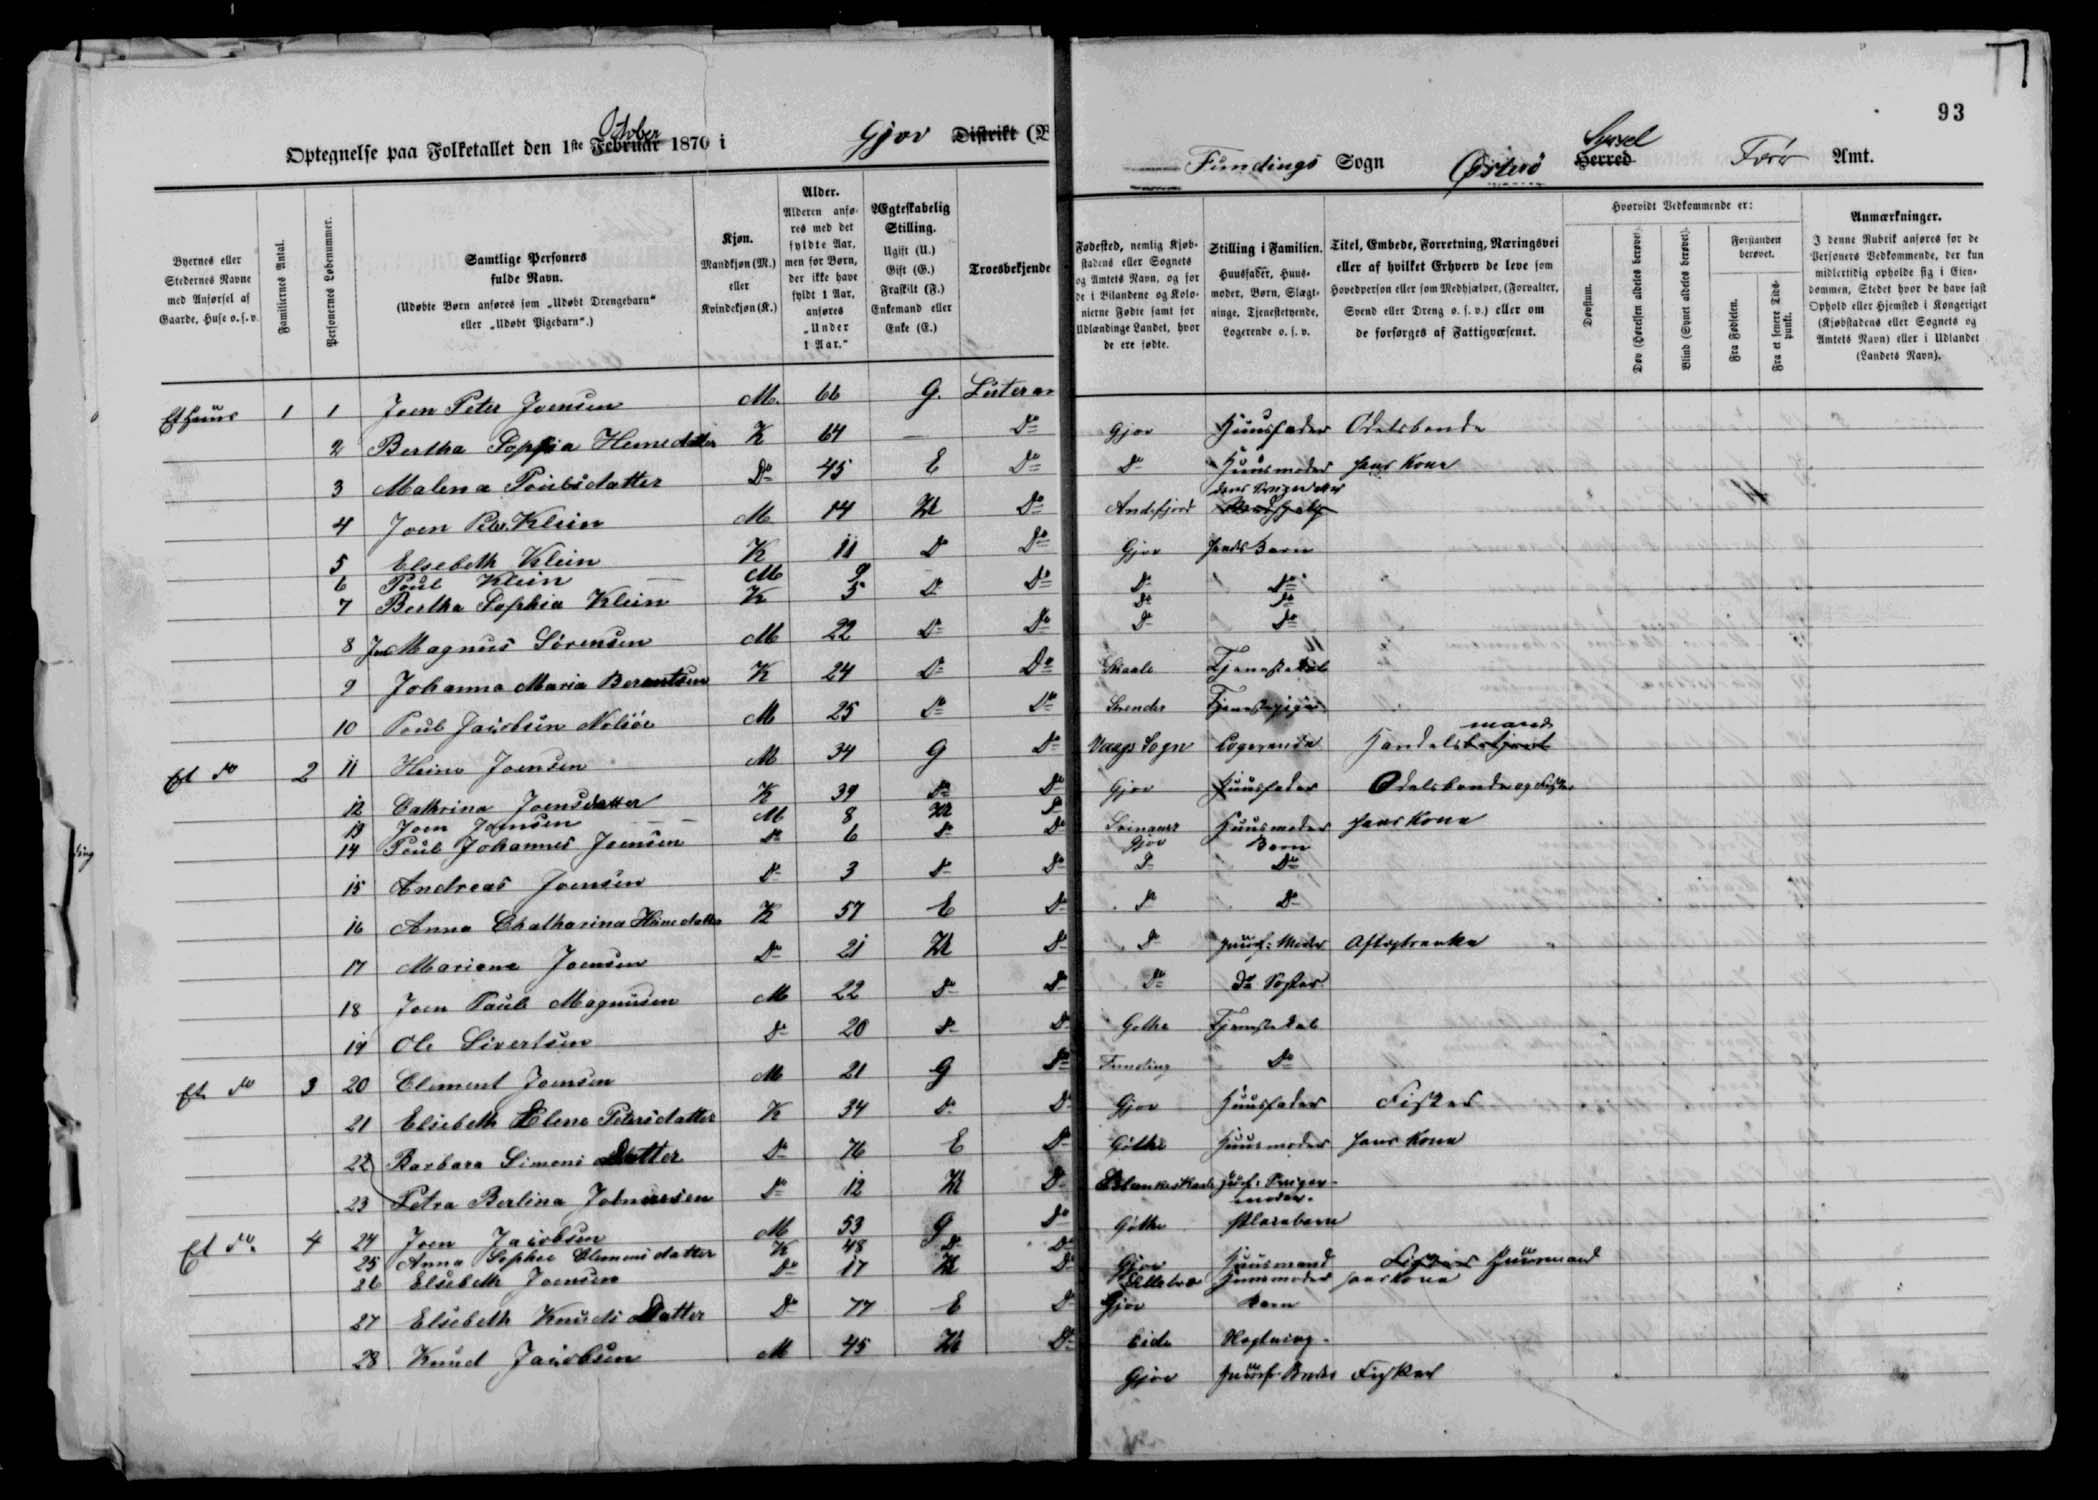 93
Optegnelse paa Folketallet den 1ste Februar October 1870 i Gjov Distrikt
Fundings Sogn Østerö Herred Syssel Færö Amt.
Byernes eller Stedernes Navne med Anførsel af Gaarde, Huse o. s. v.
Familiernes Antal.
Personernes Løbenummer.
Samtlige Personers fulde Navn.
(Udøbte Børn anføres som „Udøbt Drengebarn“ eller „Udøbt Pigebarn“.)
Kjøn.
Mandkjøn (M.) eller Kvindekjøn (K.)
Alder.
Alderen anføres med det fyldte Aar, men for Børn, der ikke have fyldt 1 Aar, anføres „Under 1 Aar.“
Ægteskabelig Stilling.
Ugift (U.) Gift (G.) Fraskilt (F.) Enkemand eller Enke (E.)
Troesbekjende
Fødested, nemlig Kjøbstadens eller Sognets og Amtets Navn, og for de i Bilandene og Kolonierne Fødte samt for Udlændinge Landet, hvor de ere fødte.
Stilling i Familien.
Huusfader, Huusmoder, Børn, Slægtninge, Tjenestetyende, Logerende o. s. v.
Titel, Embede, Forretning, Næringsvei eller af hvilket Erhverv de leve som Hovedperson eller som Medhjælper, (Forvalter, Svend eller Dreng o. s. v.) eller om de forsørges af Fattigvæsenet.
Hvorvidt Vedkommende er:
Døvstum.
Døv (Hørelsen aldeles berøvet).
Blind (Synet aldeles berøvet).
Forstanden berøvet.
Fra Fødselen.
Fra et senere Tidspunkt.
Anmærkninger.
I denne Rubrik anføres for de Personers Vedkommende, der kun midlertidig opholde sig i Eiendommen, Stedet hvor de have fast Ophold eller Hjemsted i Kongeriget (Kjøbstadens eller Sognets og Amtets Navn) eller i Udlandet (Landets Navn).
Et Huus 1 1 Joen Peter Joensen M. 66 G. Luteran Gjov Huusfader Odelsbonde
2 Bertha Sophia Heinedatter K 64 — Do Do Huusmoder hans Kone
3 Malena Poulsdatter Do 45 E Do Andefjord
4 Joen Peter Klein M 14 U Do Gjov hendes Barn
5 Elsebeth Klein K 11 Do Do Do Do
6 Poul Klein M 9 Do Do
7 Bertha Sophia Klein K 5 Do Do Do Do
8 Magnus Sörensen M 22 Do Do Skaale Tjenestekarl
9 Johanna Maria Berentsen K 24 Do Do Strender Tjenestepige
10 Poul Jacobsen Nolsöe M 25 Do Do Vaags Sogn Logerende Handelsbetjent mand
Et do 2 11 Heine Joensen M 34 G Do Gjov Huusfader Odelsbonde og Fisker
12 Cathrina Joensdatter K 39 Do Do Huusmoder hans Kone
13 Joen Joensen M 8 U Do Gjov Born
14 Poul Johannes Joensen Do 6 Do Do Do Do
15 Andreas Joensen Do 3 Do Do Do Do
16 Anna Chatharina Heinedatter K 57 E Do Do Huusf: Moder Aftægtsenke
17 Mariane Joensen Do 21 U Do Do Do Søster
18 Joen Paule Magnusen M 22 Do Do Gothe Tjenestekarl
19 Ole Sivertsen Do 20 Do Do Funding Do
Et do 3 20 Clement Joensen M 21 G Do Gjov Huusfader Fisker
21 Elsebeth Elene Petersdatter K 34 Do Do Göthe Huusmoder hans Kone
22 Barbara Simons Datter Do 76 E Do
23 Petra Berlina Do 12 U Do Göthe Pleiebarn
Et do. 4 24 Joen Jacobsen M 53 G Do Gjov Huusmand Fisker Huusmand
25 Anna Sophie Clemensdatter K 48 Do Do Huusmoder hans Kone
26 Elsebeth Joensen Do 17 U Do Gjov Barn
27 Elsebeth Knuds Datter Do 77 E Do Eide
28 Knud Jacobsen M 45 U Do Gjov Huusf: Broder Fisker